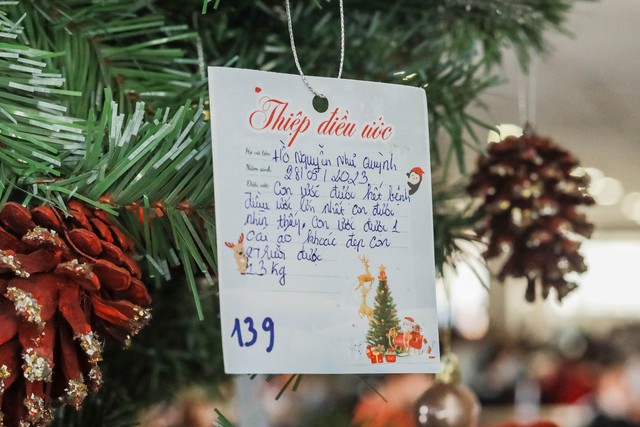 Thiệp điều ước
Họ và tên: Hồ Nguyễn Như Quỳnh
Năm sinh: 28/05/2023
Điều ước: Con ước được hết bệnh
điều ước lớn nhất con được
nhìn thấy. Con ước được 1
cái áo khoác đẹp con
được
13 kg
139